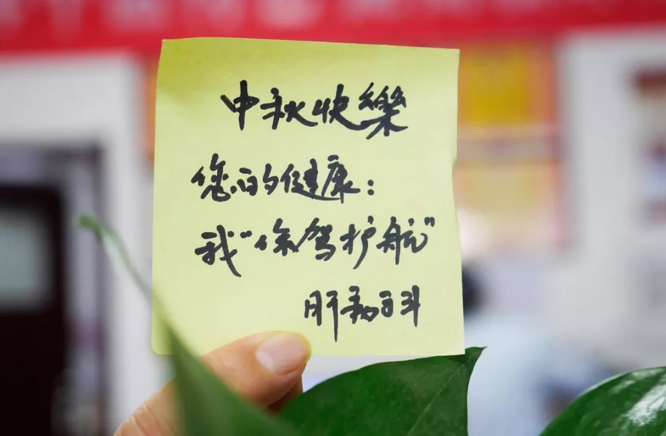 中秋快樂
您的健康：
我“保驾护航”
肝科